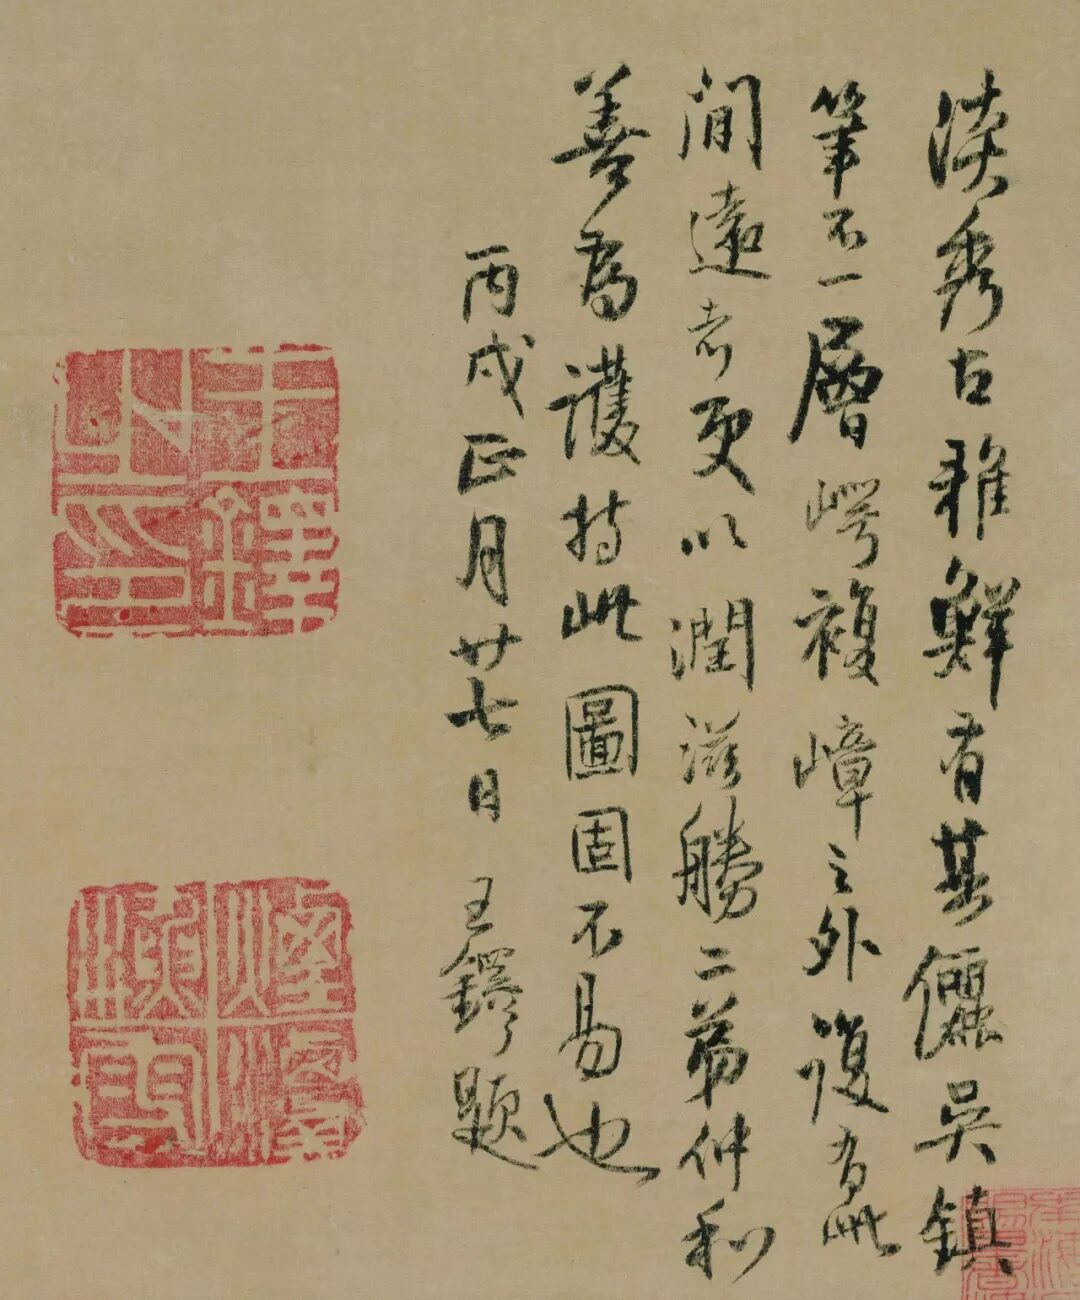 淡秀古雅鮮有其儷吳鎮
筆不一層崿複嶂之外復有此
間遠者更以潤滋勝二弟仲和
善為護持此圖固不易也
丙戌正月廿七日王鐸題
王鐸之印